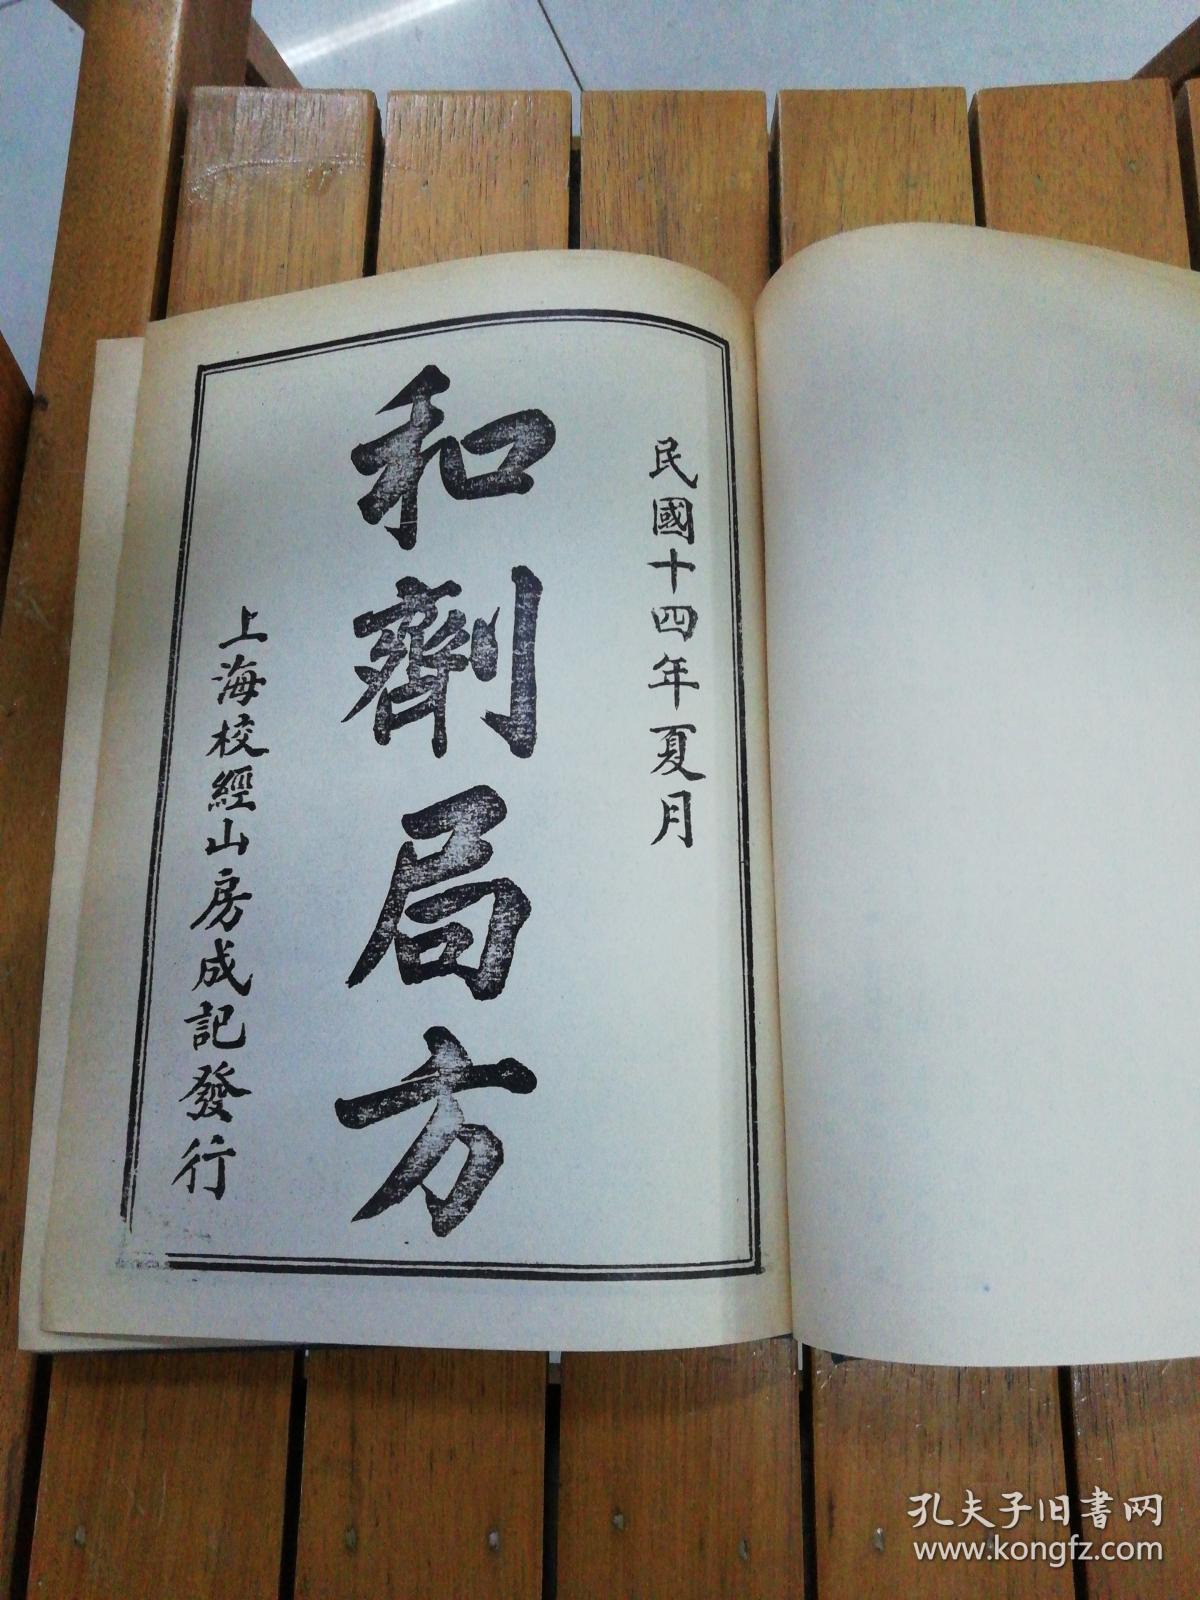 民國十四年夏月
和劑局方
上海校經山房成記發行
孔夫子旧書网
www.kongfz.com